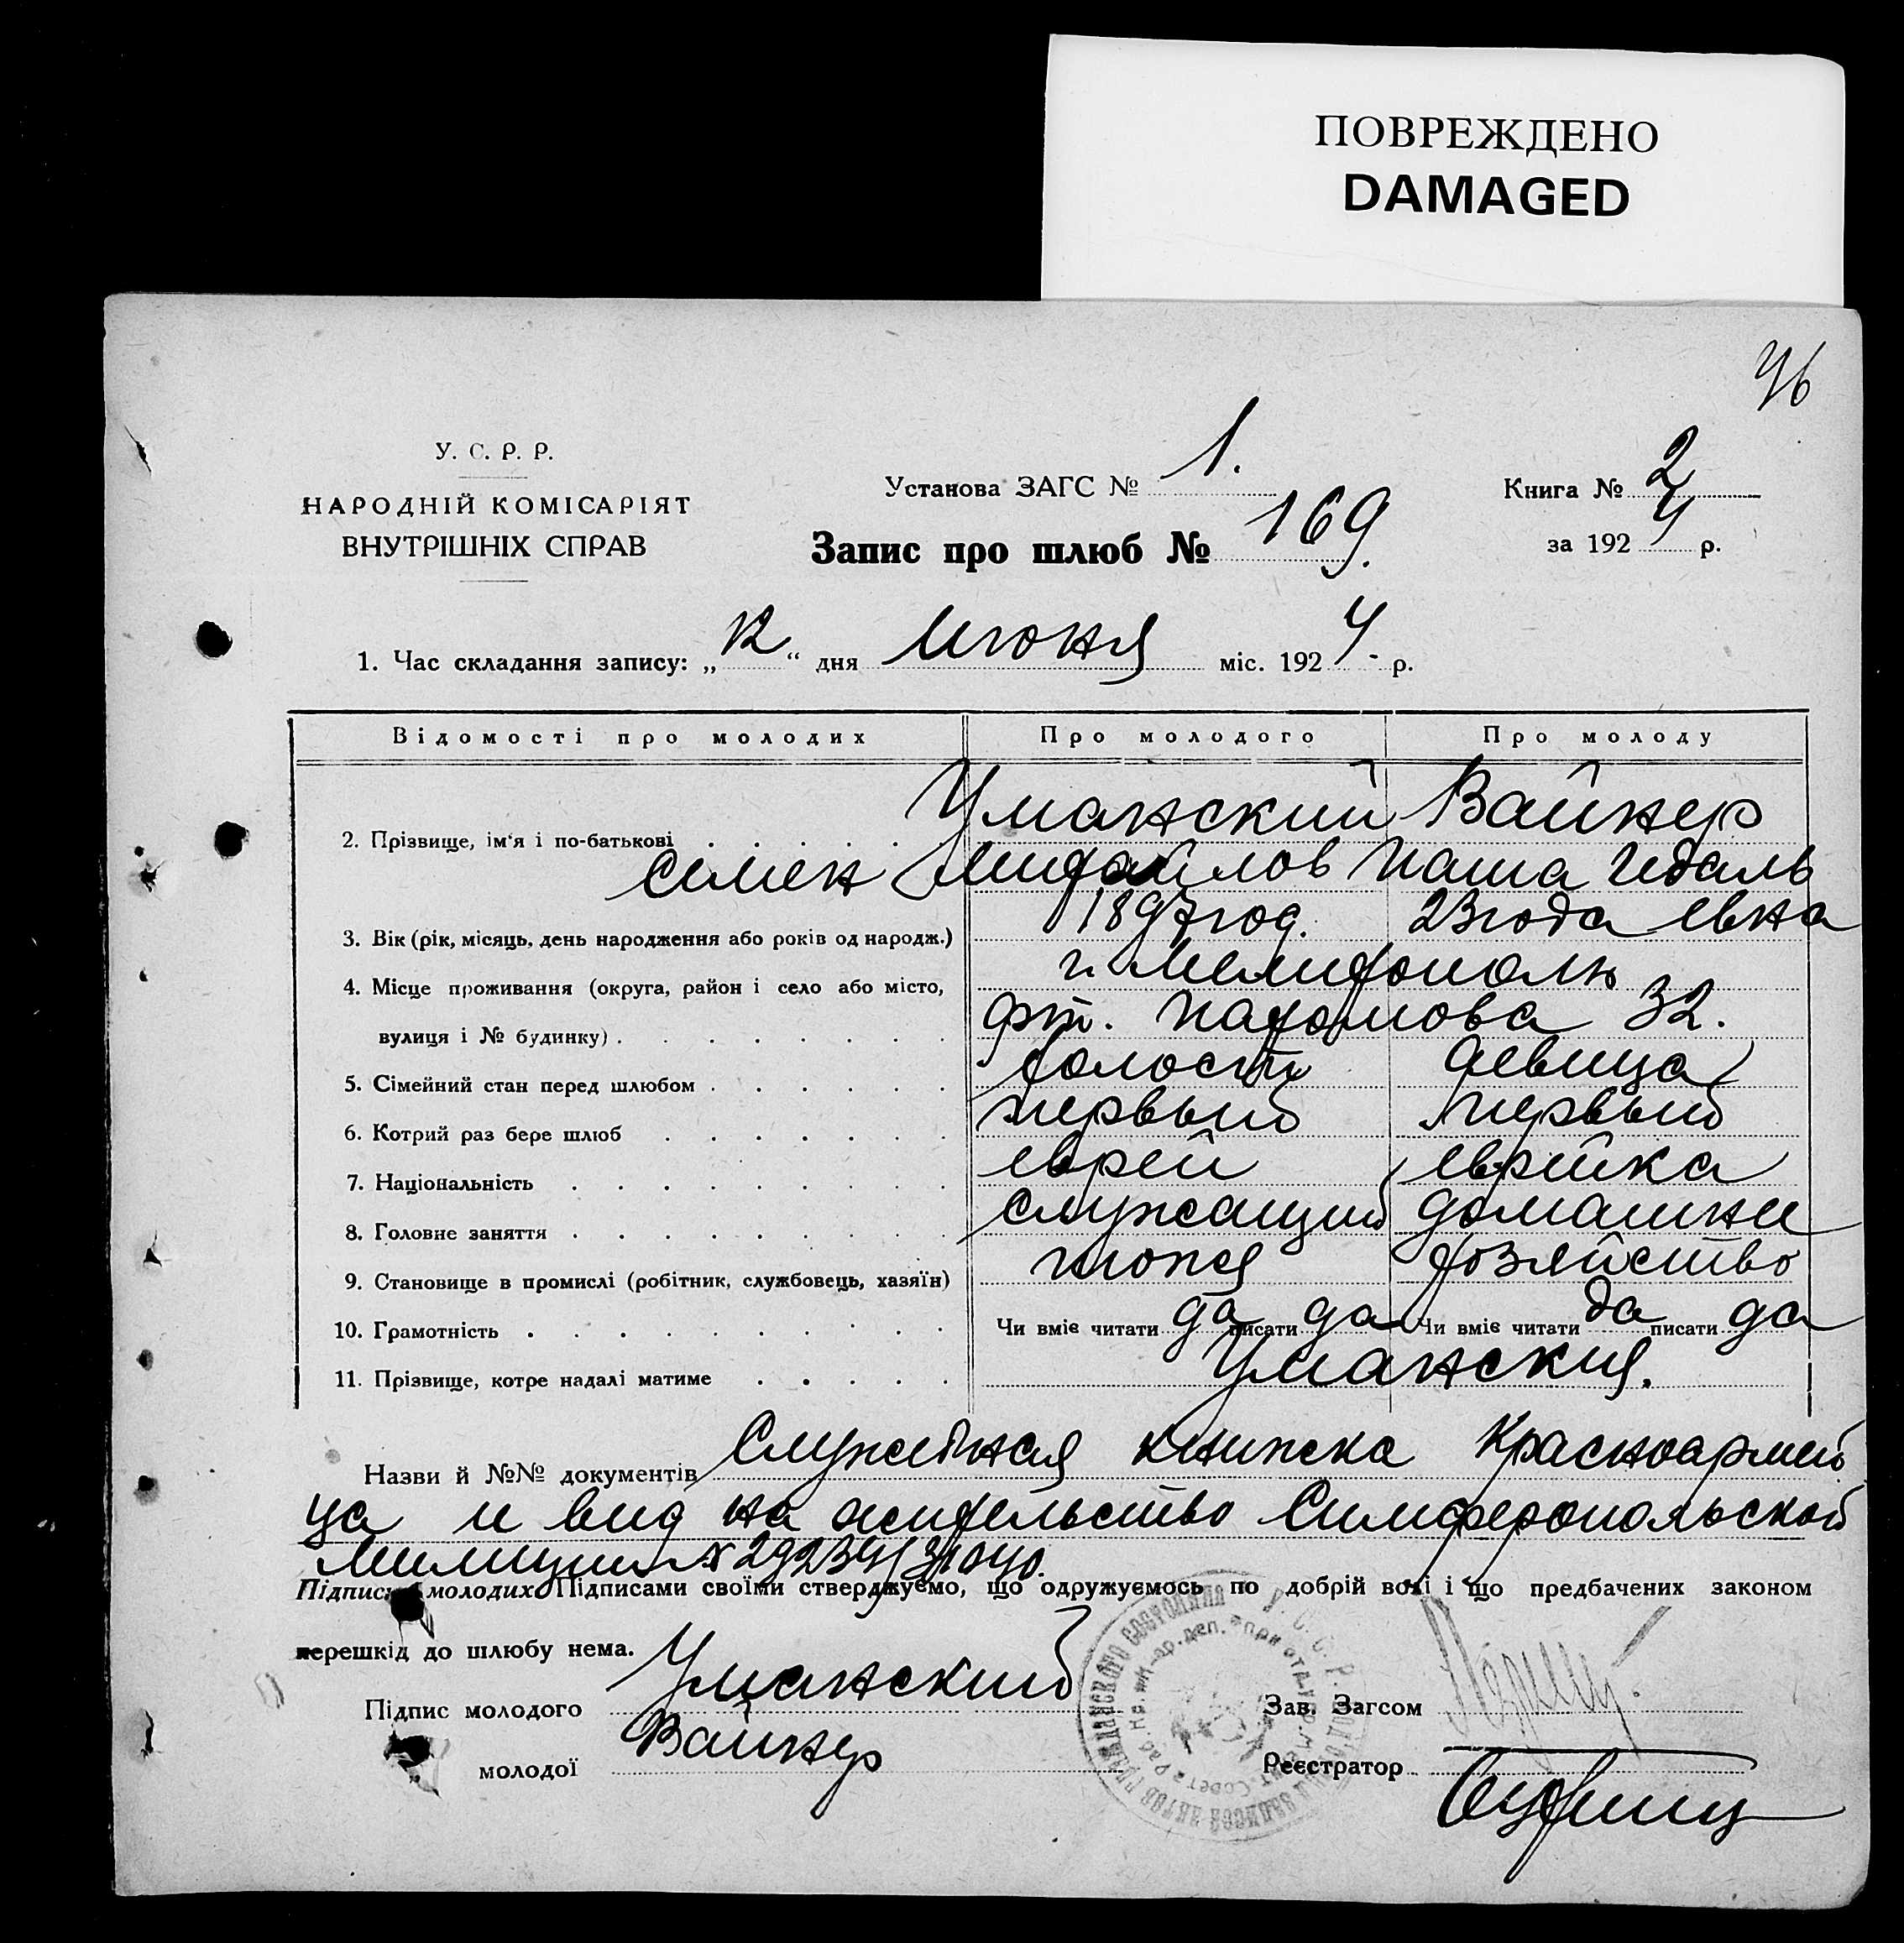 ПОВРЕЖДЕНО
DAMAGED
46
У. С. Р. Р.
НАРОДНІЙ КОМІСАРІЯТ
ВНУТРІШНІХ СПРАВ
Установа ЗАГС № 1.
Книга № 2
за 1924 р.
Запис про шлюб № 169.
1. Час складання запису: „12“ дня Июня міс. 1924 р.
Відомості про молодих Про молодого Про молоду
2. Прізвище, ім'я і по-батькові Уманский Вайнер
Семен Михайлов Паша Гедаль
3. Вік (рік, місяць, день народження або років од народж.) 1897 год. 23 года евна
4. Місце проживання (округа, район і село або місто, г. Мелитополь
вулиця і № будинку) 32.
5. Сімейний стан перед шлюбом холост девица
6. Котрий раз бере шлюб первый первый
7. Національність еврей еврейка
8. Головне заняття служащий домашнее
9. Становище в промислі (робітник, службовець, хазяїн) хозяйство
10. Грамотність Чи вміє читати да писати да Чи вміє читати да писати да
11. Прізвище, котре надалі матиме Уманския.
Назви й №№ документів Служебная книжка Красноармей
ца и вид на жительство Симферопольской
Милиции № 29234
Підписи молодих Підписами своїми стверджуємо, що одружуємось по добрій волі і що предбачених законом
перешкід до шлюбу нема.
Підпис молодого Уманский
Зав. Загсом
„ молодої Вайнер
Реєстратор